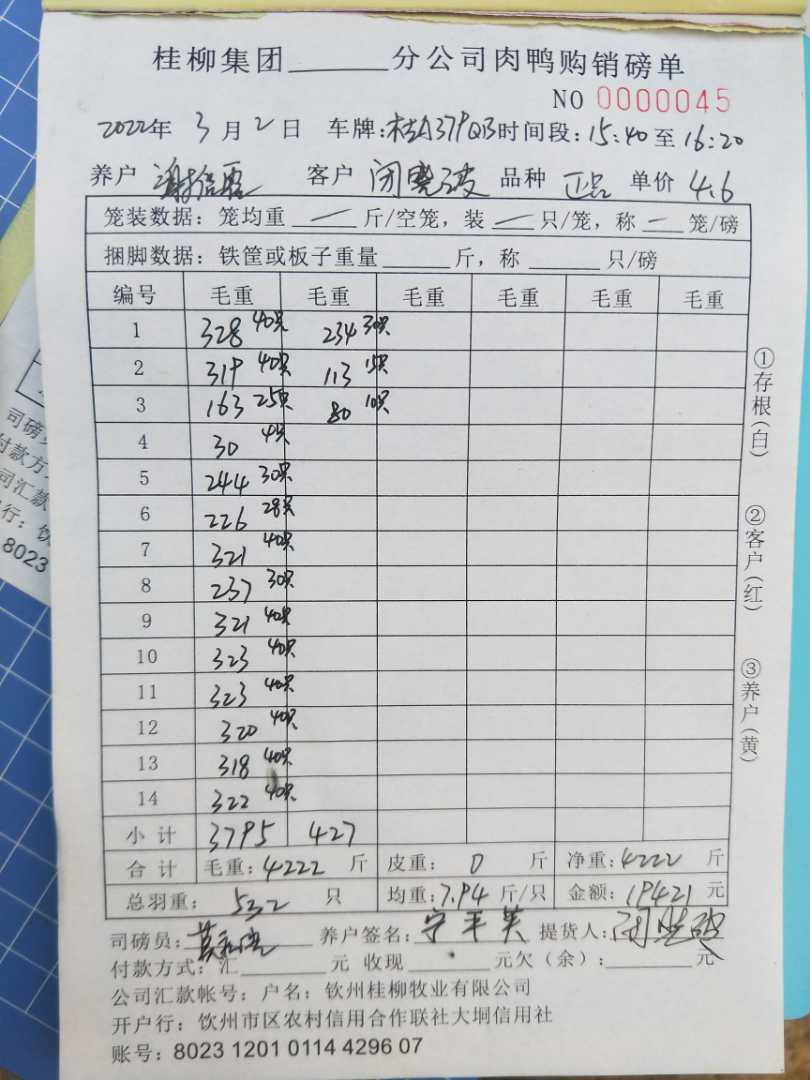 桂柳集团______分公司肉鸭购销磅单
NO 0000045
2022年 3月2日 车牌:桂A379QB时间段:15:40至16:20
养户 客户 闭晓波 品种 正品 单价 4.6
笼装数据:笼均重 — 斤/空笼,装 — 只/笼,称 — 笼/磅
捆脚数据:铁筐或板子重量______斤,称______只/磅
编号 毛重 毛重 毛重 毛重 毛重 毛重
1 328 40只 234 30只
2 319 40只 113 15只
3 163 25只 80 10只
4 30 4只
5 244 30只
6 226 28只
7 321 40只
8 237 30只
9 321 40只
10 323 40只
11 323 40只
12 320 40只
13 318 40只
14 322 40只
小计 3795 427
合计 毛重:4222 斤 皮重: 0 斤 净重:4222 斤
总羽重: 532 只 均重:7.94 斤/只 金额:19421 元
司磅员: 养户签名:宁平英 提货人:闭晓波
付款方式:汇______元 收现______元欠(余):______元
公司汇款帐号:户名:钦州桂柳牧业有限公司
开户行:钦州市区农村信用合作联社大垌信用社
账号:8023 1201 0114 4296 07
①存根(白)
②客户(红)
③养户(黄)
司磅员
付款方
司汇款
行:钦
8023